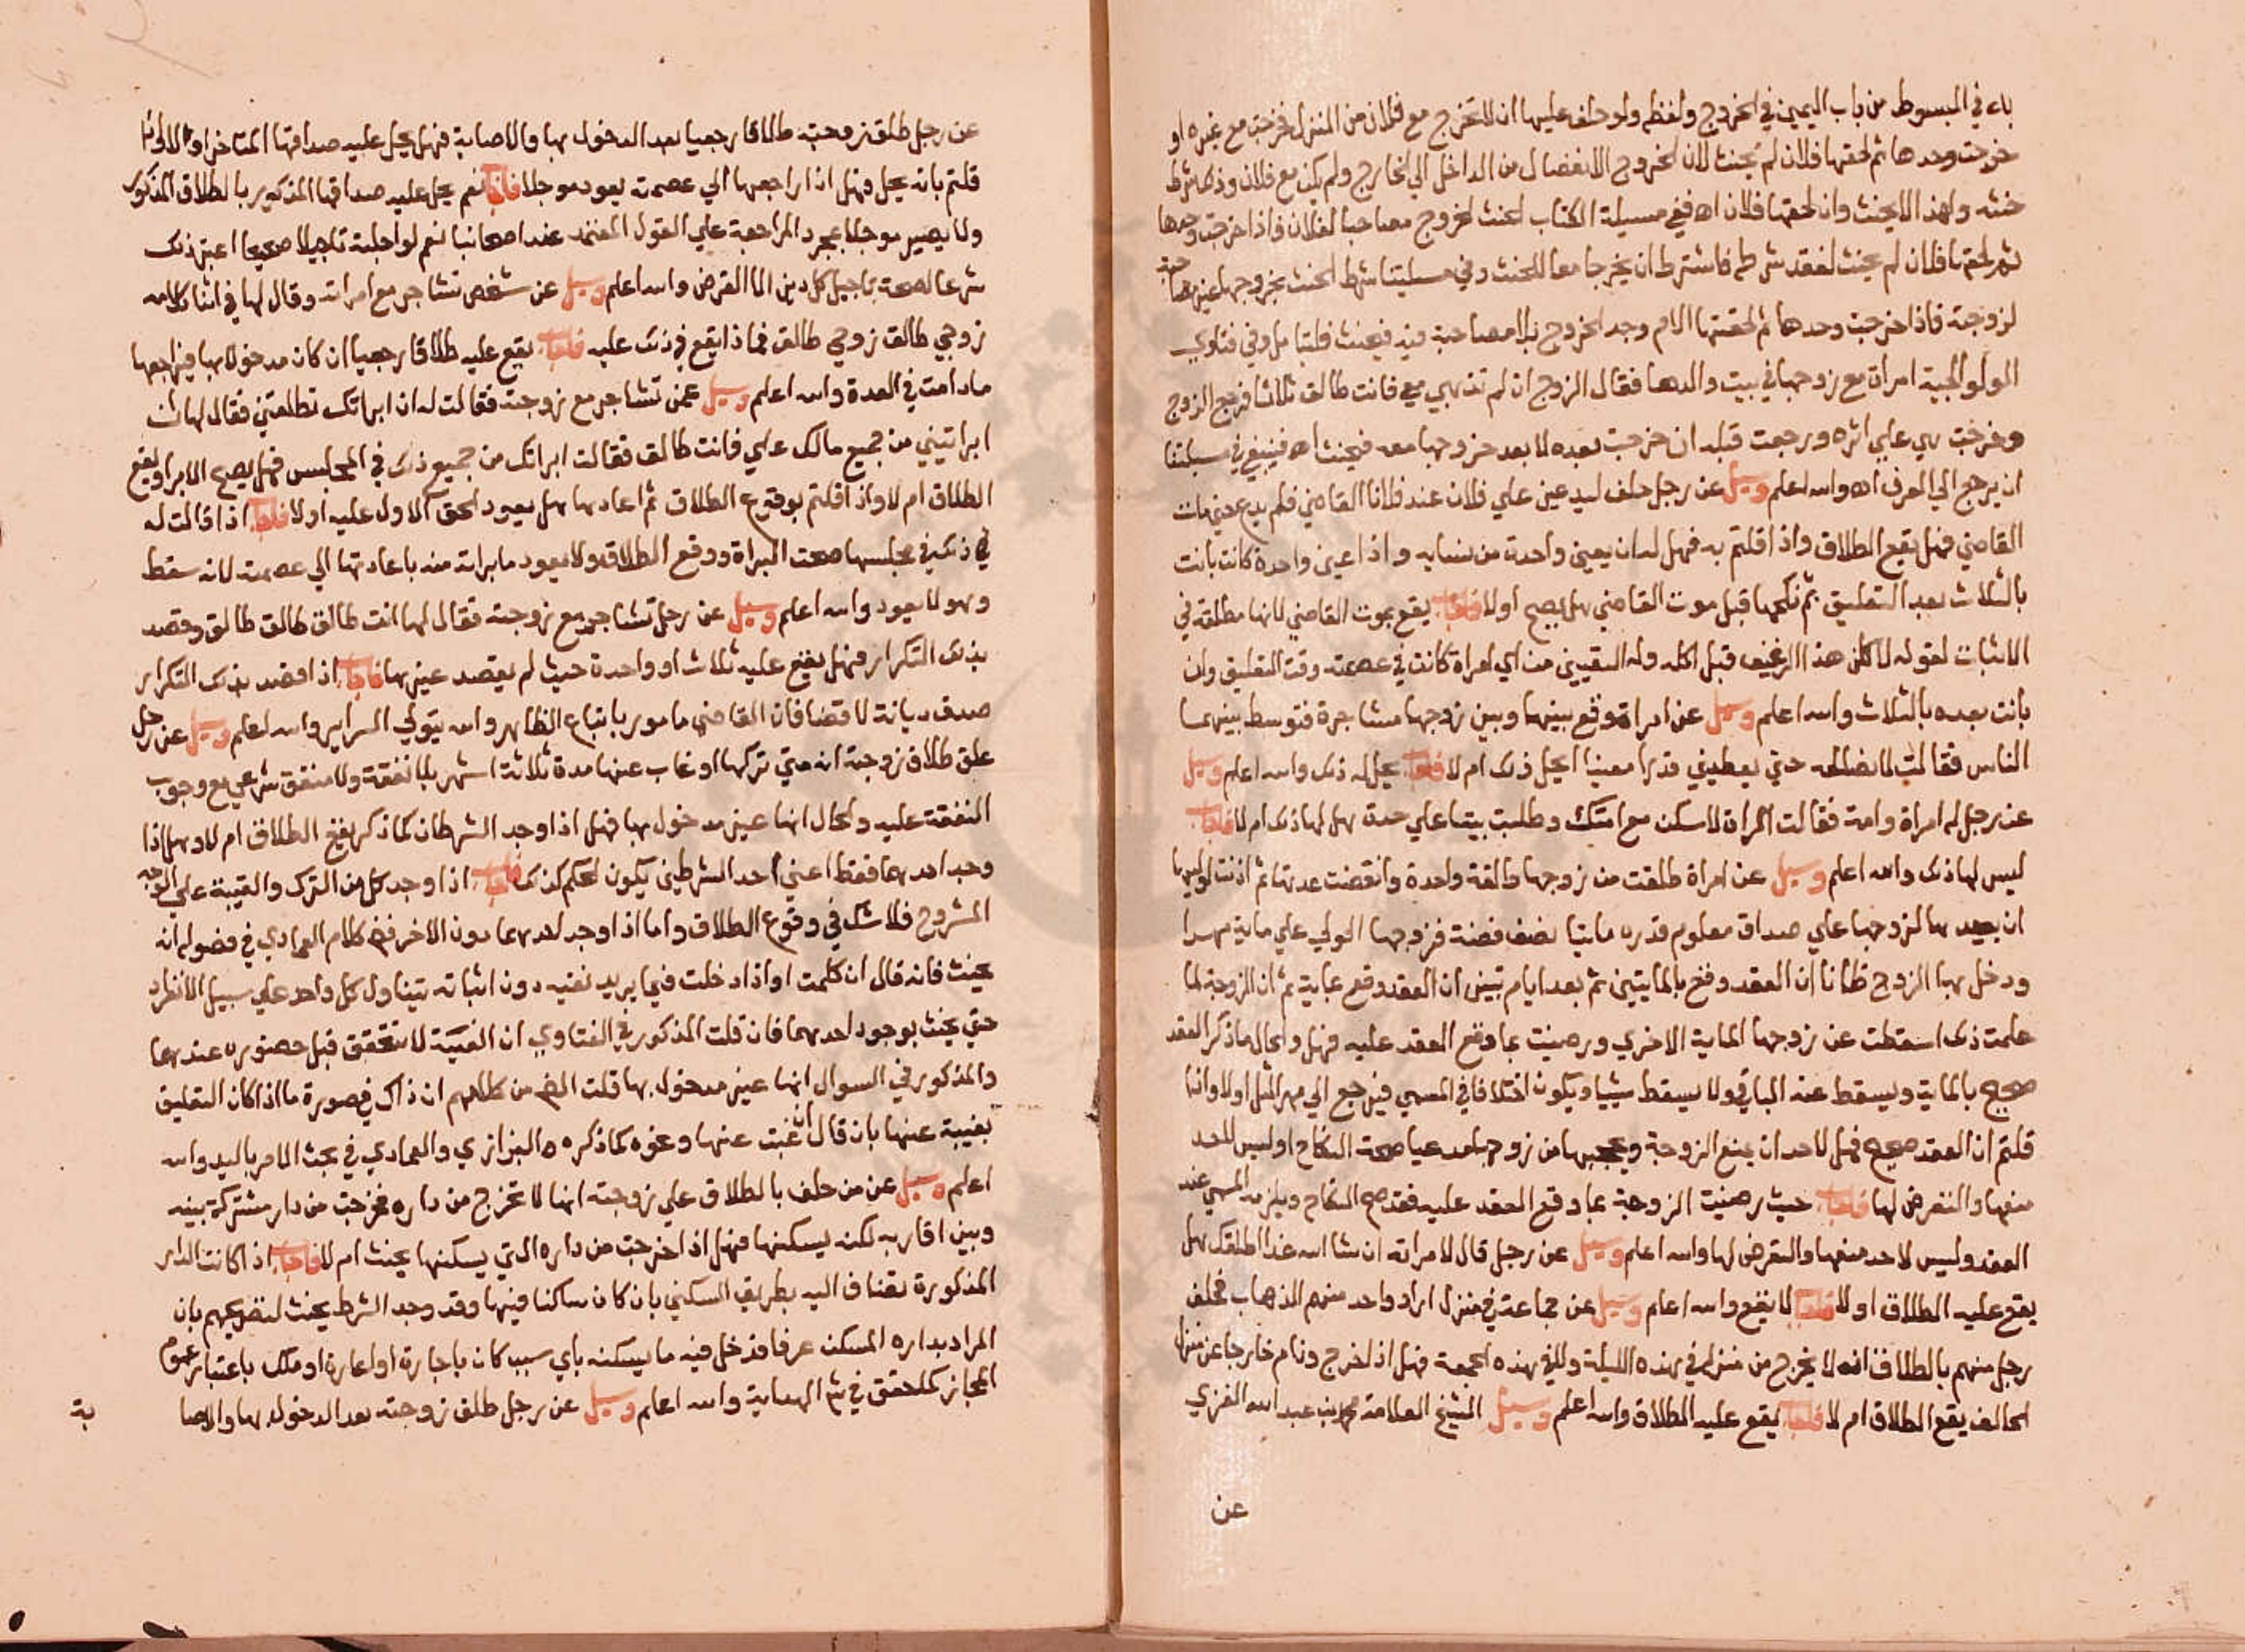 باء في المبسوط من باب اليمين في الخروج ولفظه ولو حلف عليها ان لا تخرج مع فلان من المنزل فخرجت مع غيره او
خرجت وحدها ثم لحقها فلان لم يحنث لان الخروج الانفصال من الداخل الي الخارج ولم يكن مع فلان وذلك شرط
حنثه ولهذا لا يحنث وان لحقها فلان اه ففي مسيلة الكتاب الحنث الخروج مصاحبا لفلان فاذا خرجت وحدها
ثم لحقها فلان لم يحنث لفقد شرطه فاشترط ان يخرجا معا للحنث وفي مسيلتنا شرط الحنث بخروجها غير مصاحبة
لزوجته فاذا خرجت وحدها ثم لحقتها الام وجد الخروج بلا مصاحبة فيه فيحنث فليتامل وفي فتاوي
الولوالجية امراة مع زوجها في بيت والدها فقال الزوج ان لم تذهبي معي فانت طالق ثلاثا فخرج الزوج
وخرجت هي علي اثره ورجعت قبله ان خرجت بعده لا بعد خروجها معه فيحنث اه فينبغي في مسيلتنا
ان يرجع الي العرف اه والله اعلم وسيل عن رجل حلف ليدعين علي فلان عند فلانا القاضي فلم يدع حتي مات
القاضي فهل يقع الطلاق واذا قلتم به فهل له ان يعين واحدة من نسايه واذا عين واحدة كانت بانت
بالثلاث بعد التعليق ثم نكحها قبل موت القاضي هل يصح او لا فاجاب يقع بموت القاضي لانها مطلقة في
الاثبات لقوله لاكلن هذا الرغيف قبل اكله وله التعيين من اي امراة كانت في عصمته وقت التعليق وان
بانت بعده بالثلاث والله اعلم وسيل عن امراة وقع بينها وبين زوجها مشاجرة فتوسط بينهما
الناس فقالت لا نصالحه حتي يعطيني قدرا معينا ايحل ذلك ام لا فاجاب يحل له ذلك والله اعلم وسيل
عن رجل له امراة وامة فقالت المراة لا اسكن مع امتك وطلبت بيتا علي حدة هل لها ذلك ام لا فاجاب
ليس لها ذلك والله اعلم وسيل عن امراة طلقت من زوجها طالقة واحدة وانقضت عدتها ثم اذنت لوليها
ان يعيدها لزوجها علي صداق معلوم قدره مايتا نصف فضة فزوجها الولي علي ماية مهرا
ودخل بها الزوج ظانا ان العقد وقع بالمايتين ثم بعد ايام تبين ان العقد وقع بماية ثم ان الزوجة لما
علمت ذلك اسقطت عن زوجها الماية الاخري ورضيت بما وقع العقد عليه فهل والحال ما ذكر العقد
صحيح بالماية ويسقط عنه الباقي ولا يسقط شييا ويكون اختلافا في المسمي فيرجع الي مهر المثل او لا واذا
قلتم ان العقد صحيح فهل لاحد ان يمنع الزوجة ويحجبها من زوجها مدعيا صحة النكاح او ليس لاحد
منعها والتعرض لها فاجاب حيث رضيت الزوجة بما وقع العقد عليه فقد صح النكاح ويلزمه المسمي عند
العقد وليس لاحد منعها والتعرض لها والله اعلم وسيل عن رجل قال لامراته ان شا الله غدا اطلقك هل
يقع عليه الطلاق او لا فاجاب لا يقع والله اعلم وسيل عن جماعة في منزل اراد واحد منهم الذهاب فحلف
رجل منهم بالطلاق انه لا يخرج من منزله في هذه الليلة وللي هذه الجمعة فهل اذا خرج ونام خارجا عن منزل
الحالف يقع الطلاق ام لا فاجاب يقع عليه الطلاق والله اعلم وسيل الشيخ العلامة محمد بن عبد الله الغزي
عن
عن رجل طلق زوجته طلاقا رجعيا بعد الدخول بها والاصابة فهل يحل عليه صداقها المتاخر او لا واذا
قلتم بانه يحل فهل اذا راجعها الي عصمته يعود موجلا فاجاب نعم يحل عليه صداقها المذكور بالطلاق المذكور
ولا يصير موجلا بمجرد المراجعة علي القول المعتمد عند اصحابنا نعم لو اجلته تاجيلا صحيحا اعتبر ذلك
شرعا لصحة تاجيل كل دين الا القرض والله اعلم وسيل عن شخص تشاجر مع امراته وقال لها في اثنا كلامه
زوجي طالق زوجي طالق فماذا يقع في ذلك عليه فاجاب يقع عليه طلاقا رجعيا ان كان مدخولا بها فيراجعها
ما دامت في العدة والله اعلم وسيل عمن تشاجر مع زوجته فقالت له ان ابراتك تطلقني فقال لها ان
ابراتيني من جميع مالك علي فانت طالق فقالت ابراتك من جميع ذلك في المجلس فهل يصح الابرا ويقع
الطلاق ام لا واذا قلتم بوقوع الطلاق ثم اعادها هل يعود الحق الاول عليه او لا فاجاب اذا قالت له
في ذلك في مجلسها صحت البراة ووقع الطلاق ولا يعود ما براته منه باعادتها الي عصمته لانه سقط
وهو لا يعود والله اعلم وسيل عن رجل تشاجر مع زوجته فقال لها انت طالق طالق طالق وقصد
بذلك التكرار فهل يقع عليه ثلاث او واحدة حيث لم يقصد غيرها فاجاب اذا قصد بذلك التكرار
صدق ديانة لا قضا فان القاضي مامور باتباع الظاهر والله يتولي السراير والله اعلم وسيل عن رجل
علق طلاق زوجته انه متي تركها او غاب عنها مدة ثلاثة اشهر بلا نفقة ولا منفق شرعي مع وجوب
النفقة عليه والحال انها غير مدخول بها فهل اذا وجد الشرطان كما ذكر يقع الطلاق ام لا وهل اذا
وجد احدهما فقط اعني احد الشرطين يكون الحكم كذلك فاجاب اذا وجد كل من الترك والغيبة علي الوجه
المشروح فلا شك في وقوع الطلاق واما اذا وجد احدهما دون الاخر ففي كلام العمادي في فصوله انه
يحنث فانه قال ان كلمت او اذا دخلت فيما يريد نفيه دون اثباته يتناول كل واحد علي سبيل الانفراد
حتي يحنث بوجود احدهما فان قلت المذكور في الفتاوي ان الغيبة لا تتحقق قبل حضوره عندهما
والمذكور في السوال انها غير مدخول بها قلت الفهم من كلامهم ان ذاك في صورة ما اذا كان التعليق
بغيبة عنها بان قال ان غبت عنها ونحوه كما ذكره البزازي والعمادي في بحث الامر باليد والله
اعلم وسيل عن من حلف بالطلاق علي زوجته انها لا تخرج من داره فخرجت من دار مشتركة بينه
وبين اقاربه لكنه يسكنها فهل اذا خرجت من داره التي يسكنها يحنث ام لا فاجاب اذا كانت الدار
المذكورة تضاف اليه بطريق السكني بان كان ساكنا فيها وقد وجد الشرط يحنث لتصريحهم بان
المراد بداره المسكن عرفا فدخل فيه ما يسكنه باي سبب كان باجارة او اعارة او ملك باعتبار عموم
المجاز كما حقق في ش الهداية والله اعلم وسيل عن رجل طلق زوجته بعد الدخول بها والاصا
بة